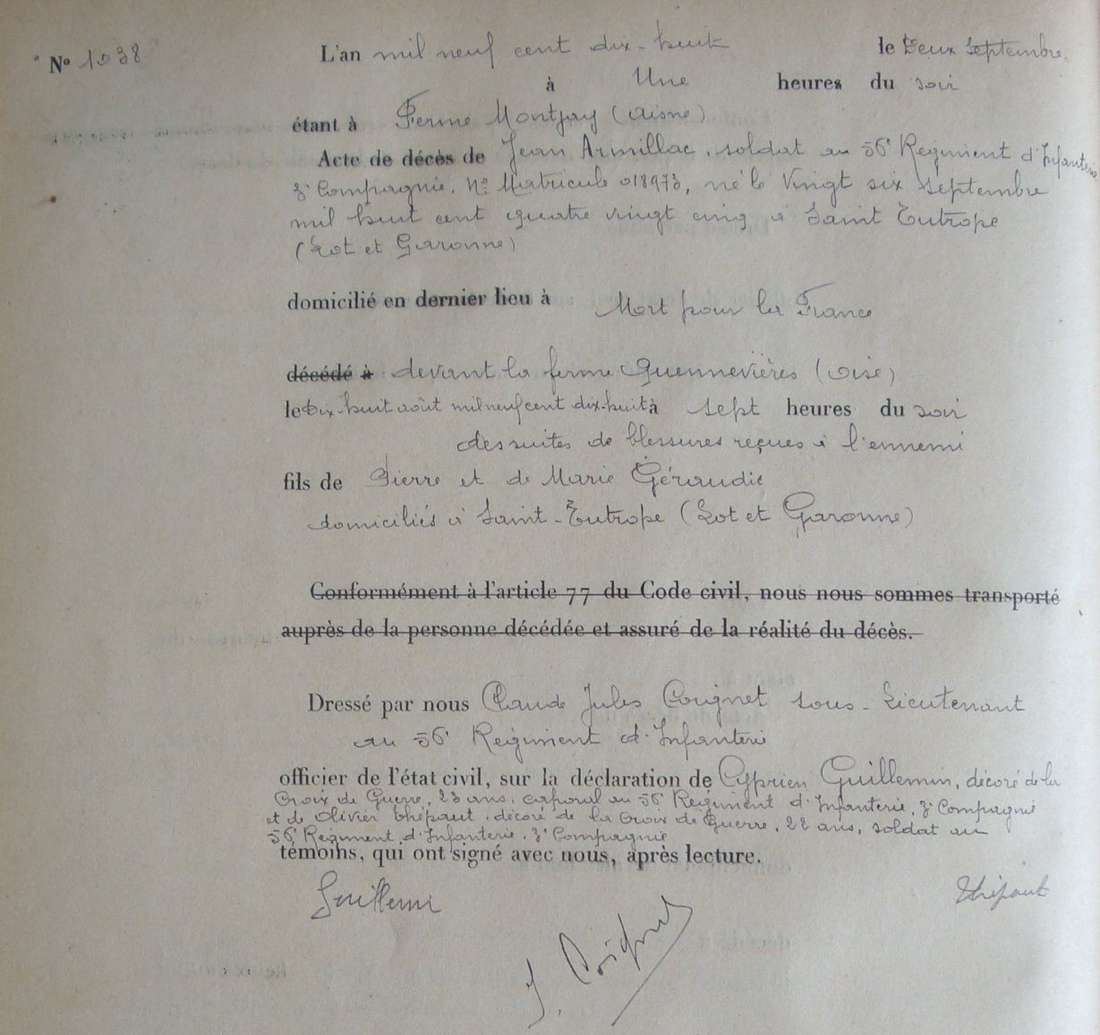 N° 1038
L'an mil neuf cent dix-huit le Deux Septembre
à Une heures du soir
étant à Ferme Montjay (Aisne)
Acte de décès de Jean Armillac, soldat au 56e Régiment d'Infanterie
3e Compagnie, N° Matricule 018973, né le Vingt six Septembre
mil huit cent quatre vingt cinq à Saint Eutrope
(Lot et Garonne)
domicilié en dernier lieu à Mort pour la France
décédé à devant la ferme Quennevières (Oise)
le Dix-huit août mil neuf cent dix-huit à sept heures du soir
des suites de blessures reçues à l'ennemi
fils de Pierre et de Marie Géraudie
domiciliés à Saint-Eutrope (Lot et Garonne)
Conformément à l'article 77 du Code civil, nous nous sommes transporté
auprès de la personne décédée et assuré de la réalité du décès.
Dressé par nous Claude Jules Coignet sous-Lieutenant
au 56e Régiment d'Infanterie
officier de l'état civil, sur la déclaration de Cyprien Guillemin, décoré de la
Croix de Guerre, 23 ans, caporal au 56e Régiment d'Infanterie, 3e Compagnie
et de Olivier Thépaut, décoré de la Croix de Guerre, 22 ans, soldat au
56e Régiment d'Infanterie, 3e Compagnie
témoins, qui ont signé avec nous, après lecture.
Guillemi Thépaut
J. Coignet